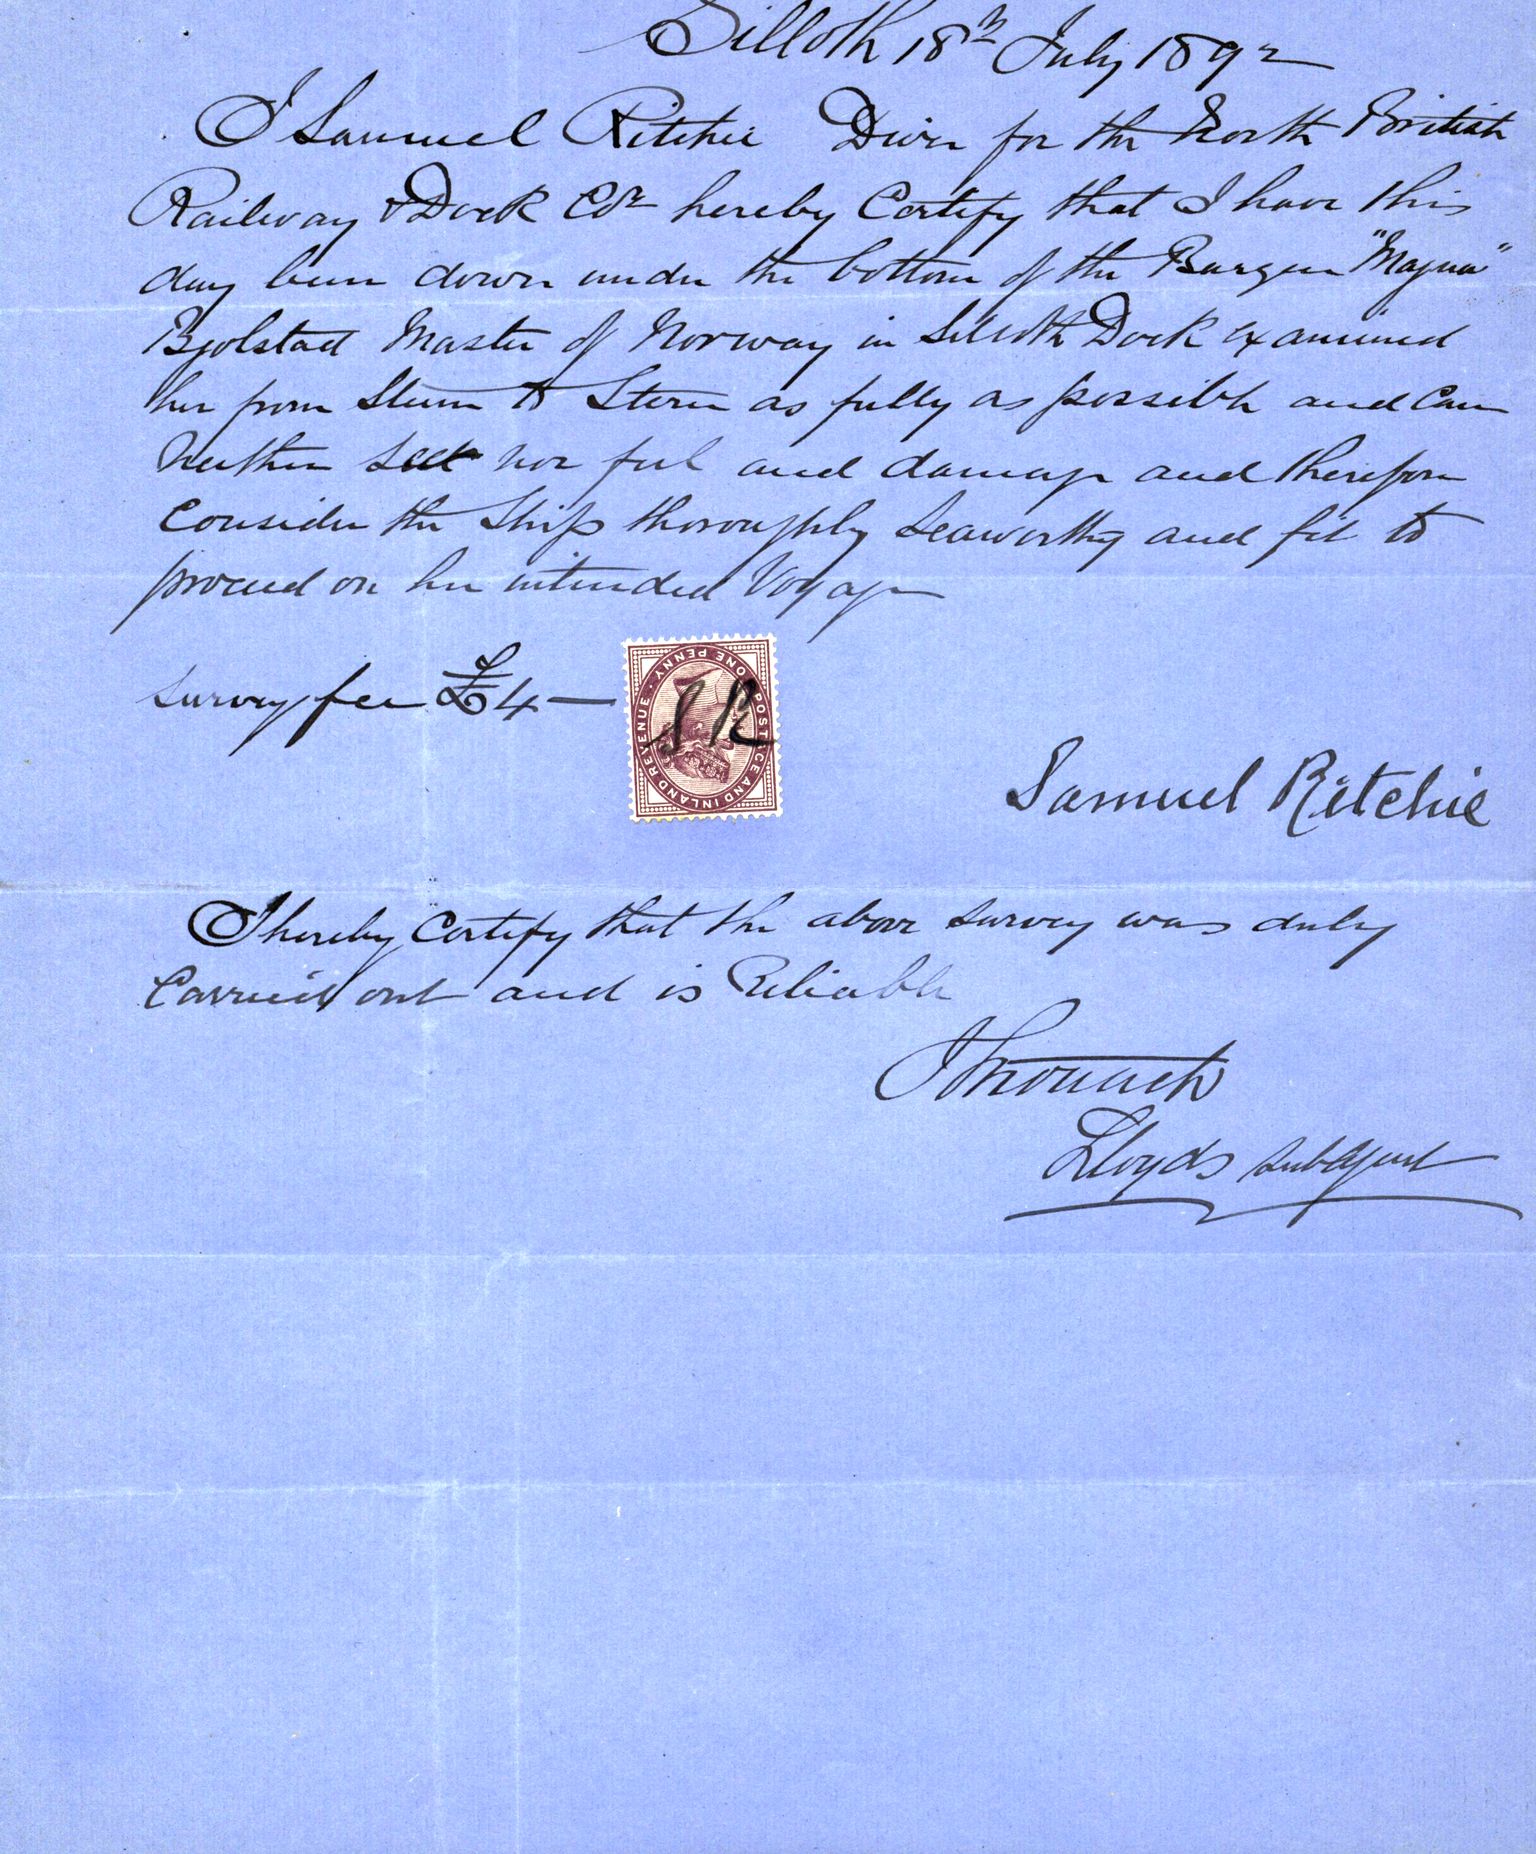 Silloth 18th July 1892
I Samuel Ritchie Diver for the North British
Railway & Dock Coy hereby Certify that I have this
day been down under the bottom of the "Magna"
Bjolstad Master of Norway in Silloth Dock examined
her from Stem to Stern as fully as possible and Can
Neither see nor feel and damage and therefore
Consider the Ship thoroughly Seaworthy and fit to
proceed on her intended Voyage
Survey fee £4 —
POSTAGE AND INLAND REVENUE · ONE PENNY
S R
Samuel Ritchie
I hereby Certify that the above survey was duly
Carried out and is Reliable
Lloyds sub Agent